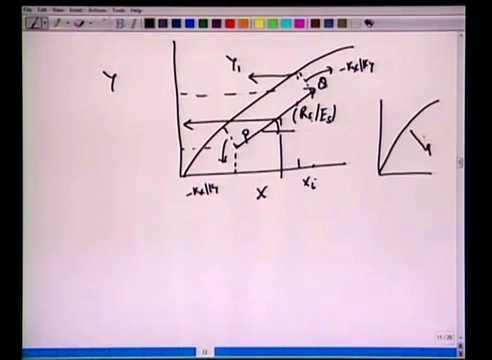 File Edit View Insert Actions Tools Help
B
Y₁
-Kx/Ky
Y
Q
(Rs/Es)
P
-Kx/Ky
X
Xi
11/25